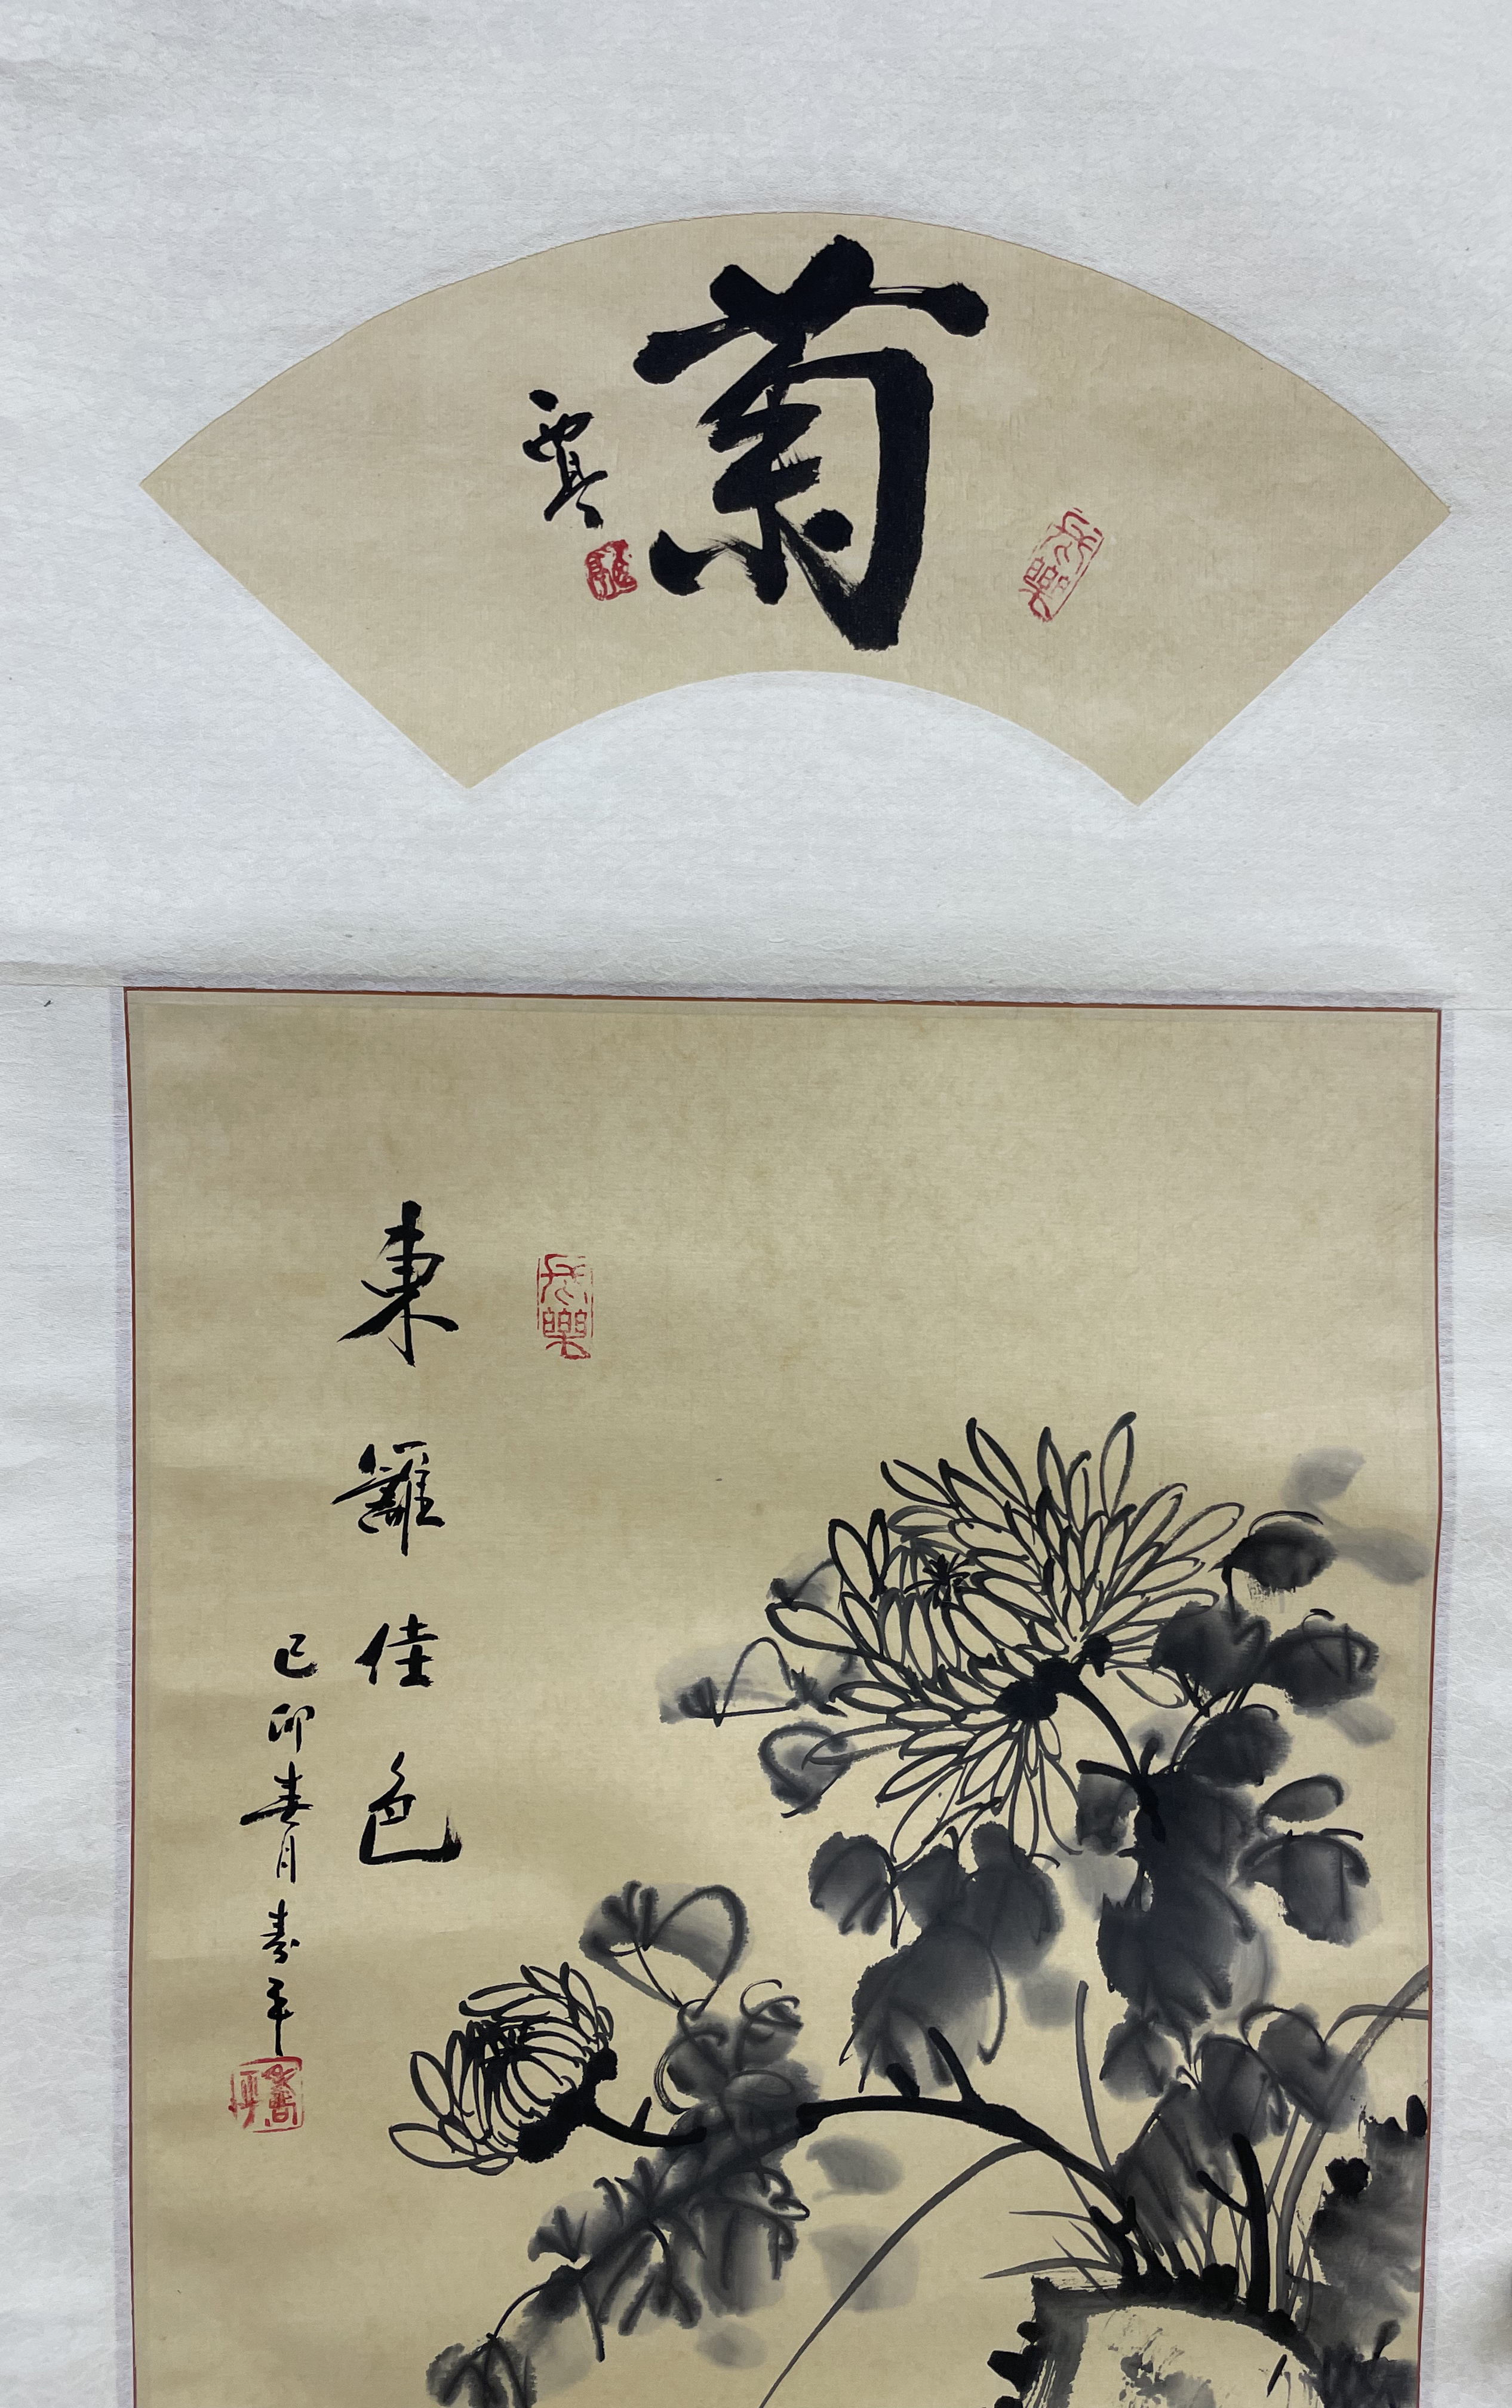 菊
東籬佳色
己卯春月壽平